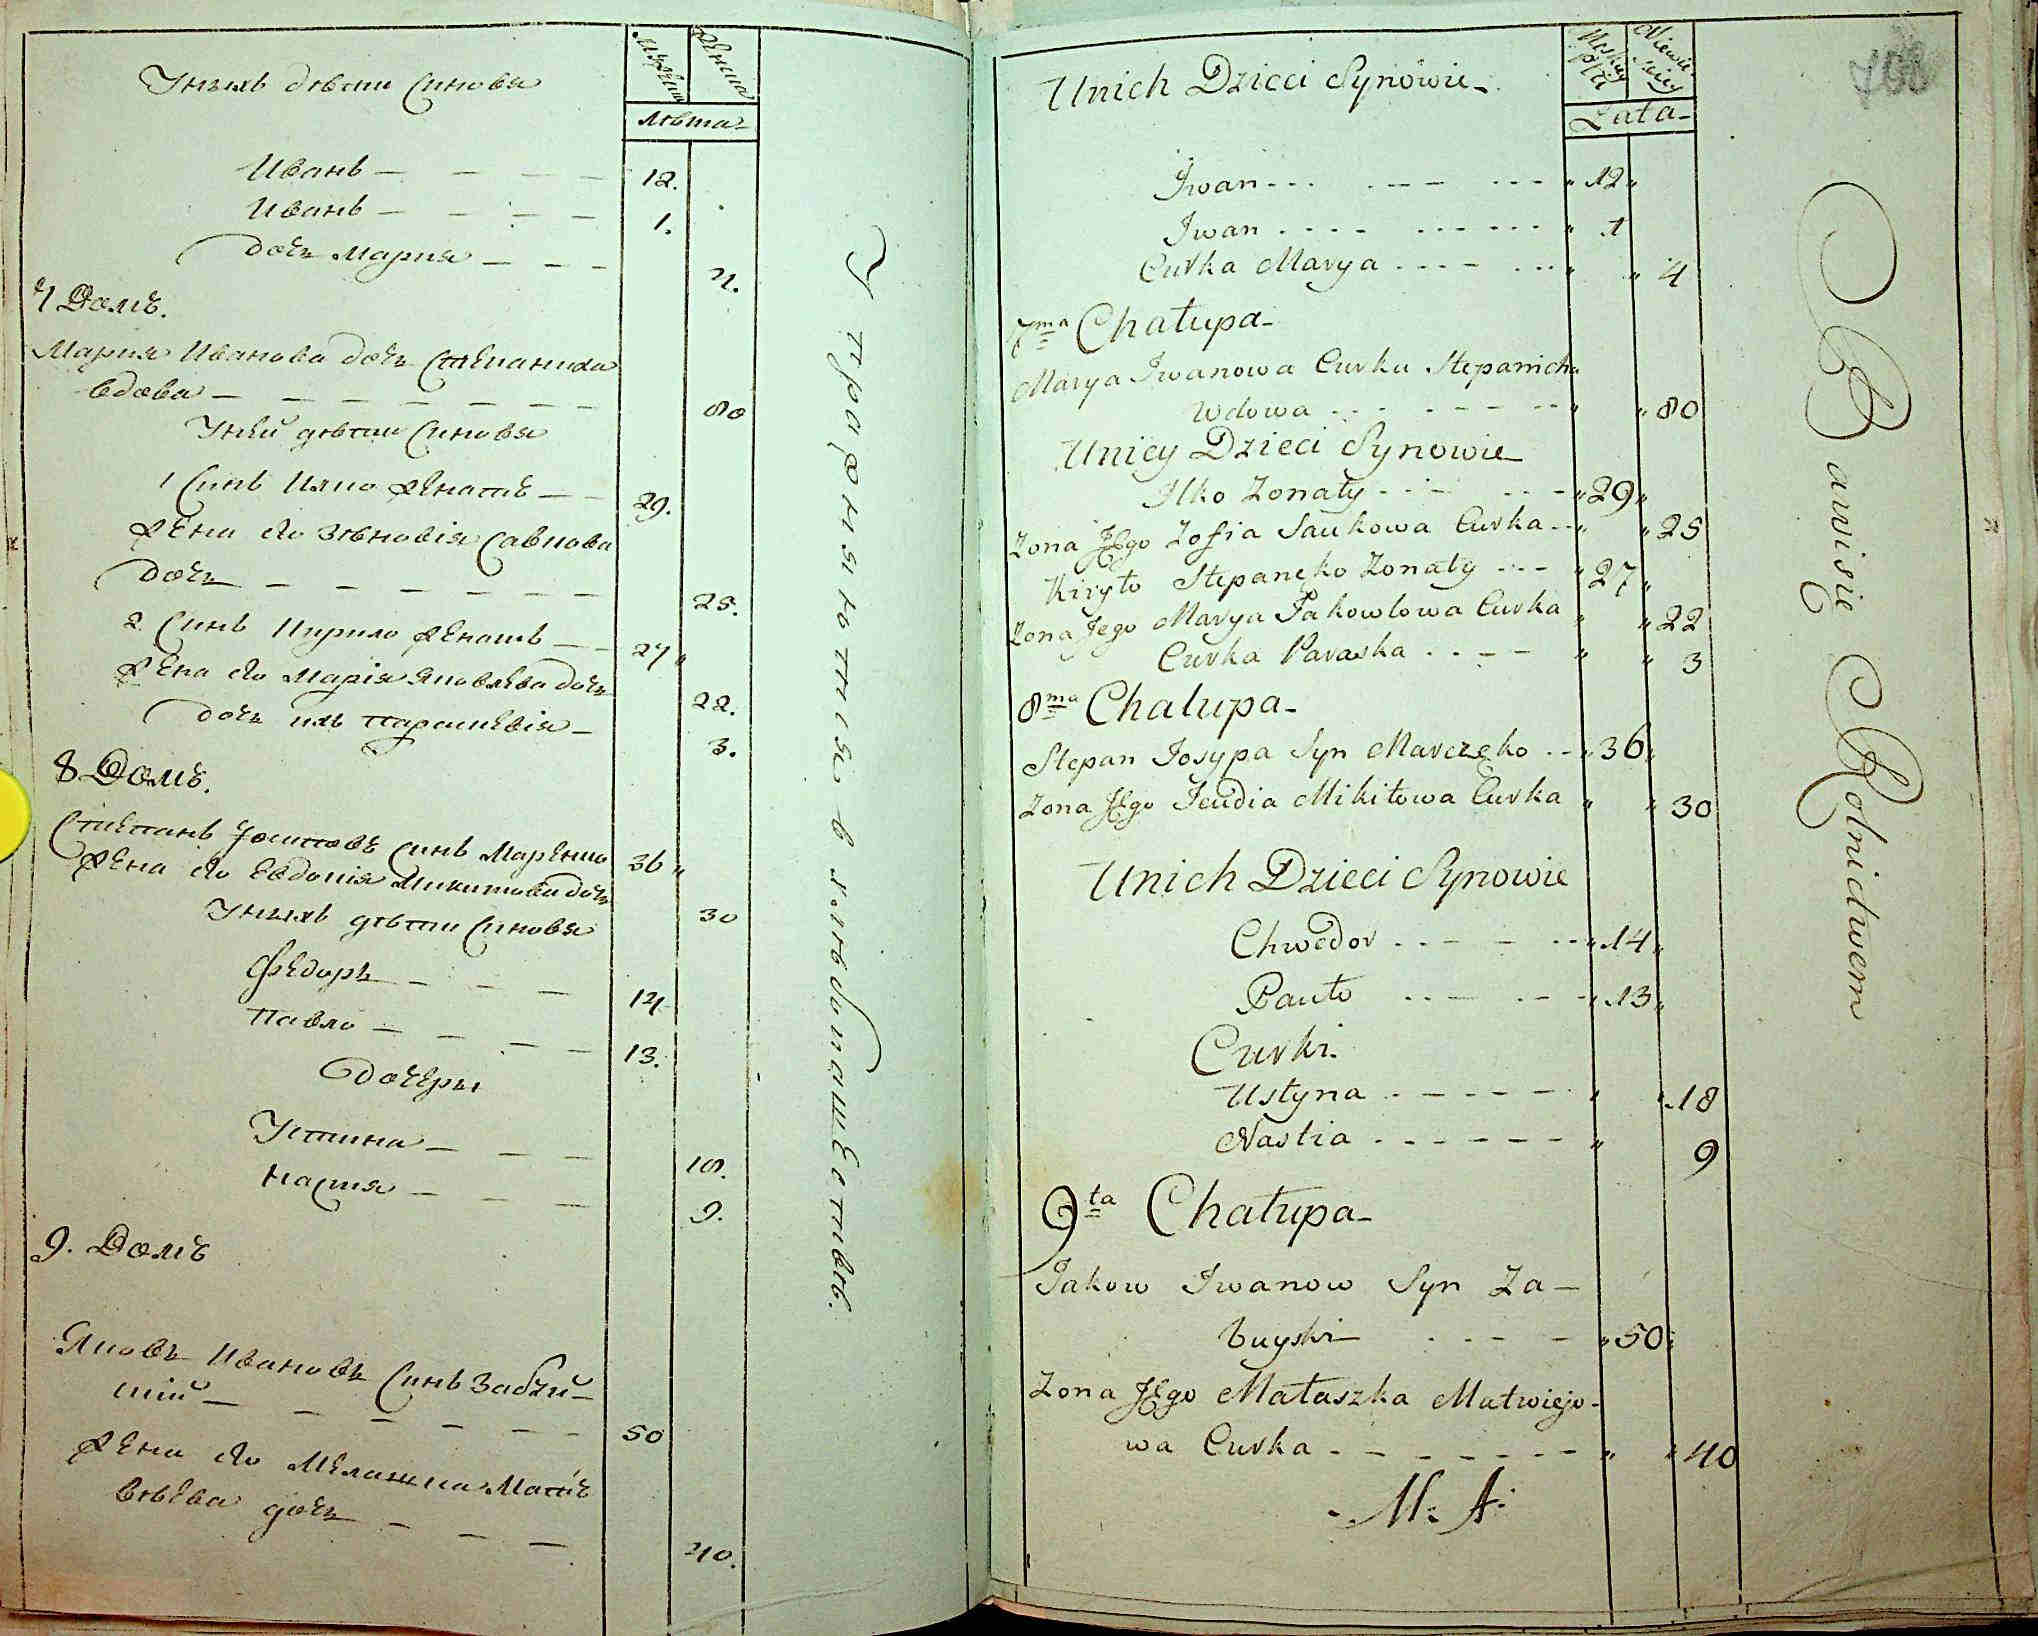 Унихъ дѣти синовя
мужеска
женска
лѣта
Иванъ — — — — 12.
Иванъ — — — — 1.
дочь Мария — — — 4.
7 Домъ.
Мария Иванова дочь Степаниха
вдова — — — — — — — 80
Уней дѣти синовя
1 Синъ Илко женатъ — — 29.
жена его Зѣновія Савкова
дочь — — — — — — 25.
2. Синъ Кирило женатъ — — 27
жена его Марія Яковлева дочь 22.
дочь ихъ Параскевія — 3.
8 Домъ.
Степанъ Йосиповъ синъ Марченко 36
жена его Евдокія Микитова дочь
Унихъ дѣти синовя 30
Федоръ — — — 14
Павло — — — — 13.
дочеры
Устина — — — 18.
Настя — — — 9.
9. Домъ
Яковъ Ивановъ синъ Забуй-
скій — — — — — — 50
жена его Меланка Мат-
вѣева дочь — — — 40.
Упражняютися в хлѣбопашествѣ.
Unich Dzieci Synowie
Męzkiey płci
Lata
Iwan 12
Iwan 1
Curka Marya 4
7ma Chałupa
Marya Iwanowa Curka Stepanicha
Wdowa 80
Unicy Dzieci Synowie
Ilko Zonaty 29
Zona Jego Zofia Saukowa Curka 25
Kiryło Stepanęko Zonaty 27
Zona Jego Marya Jakowlowa Curka 22
Curka Paraska 3
8ma Chałupa
Stepan Josypa Syn Marczęko 36
Zona Jego Jeudia Mikitowa Curka 30
Unich Dzieci Synowie
Chwedor 14
Pauło 13
Curki
Ustyna 18
Nastia 9
9ta Chałupa
Jakow Iwanow Syn Za-
buyski 50
Zona Jego Małaszka Matwiejo-
wa Curka 40
M. A.
Bawisię Rolnictwem